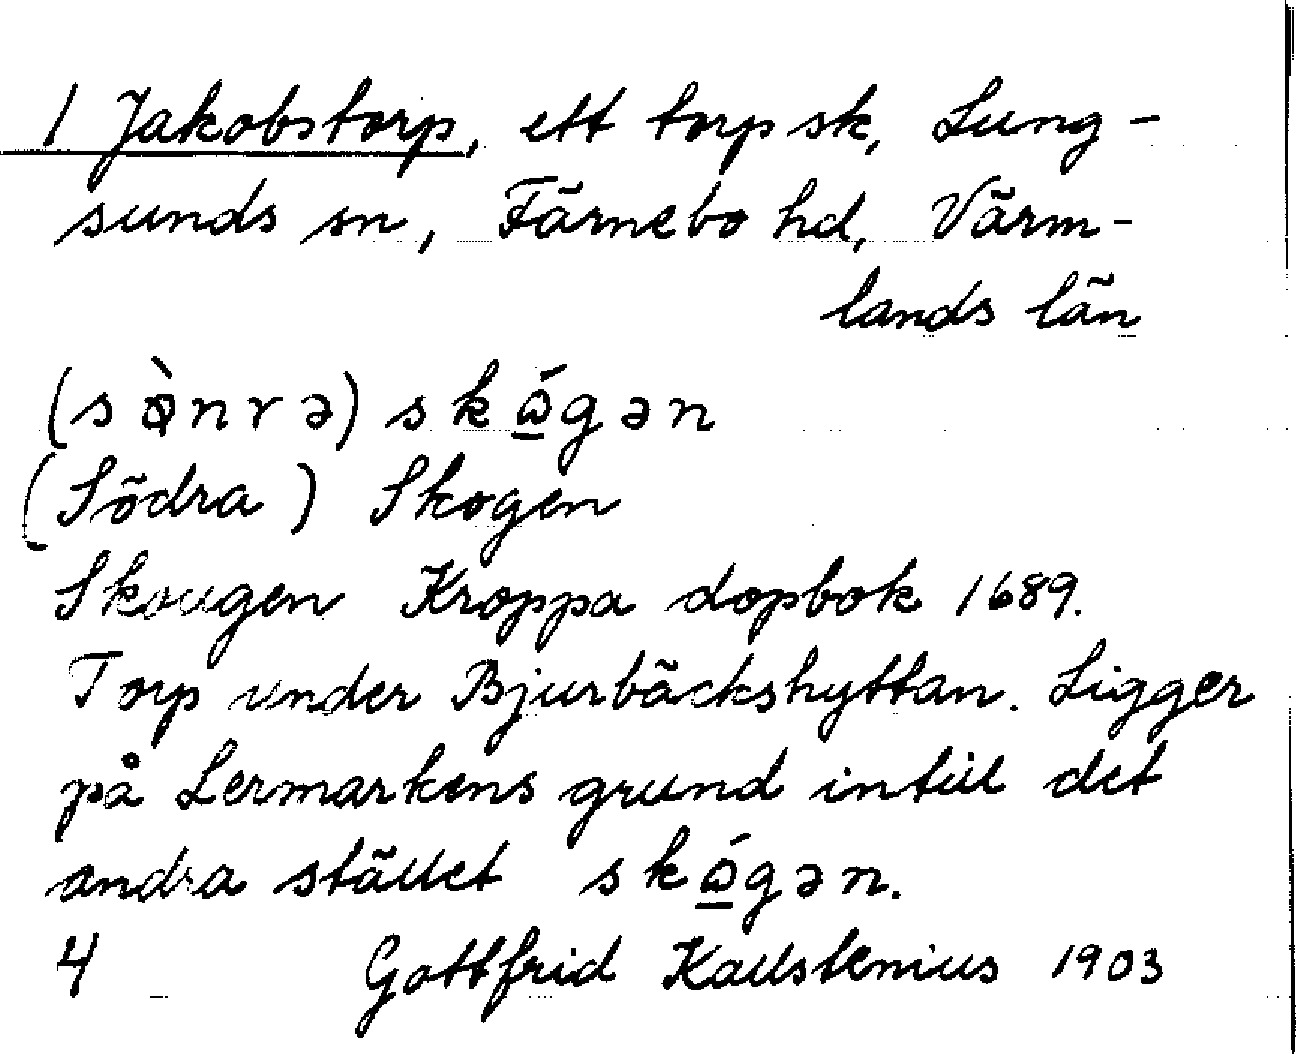 1 Jakobstorp, ett torp sk, Lung-
sunds sn, Färnebo hd, Värm-
lands län
(sѳ̀nrə) skɷ̱́gən
(Södra) Skogen
Skougen Kroppa dopbok 1689.
Torp under Bjurbäckshyttan. Ligger
på Lermarkens grund intill det
andra stället skɷ̱́gən.
4 Gottfrid Kallstenius 1903